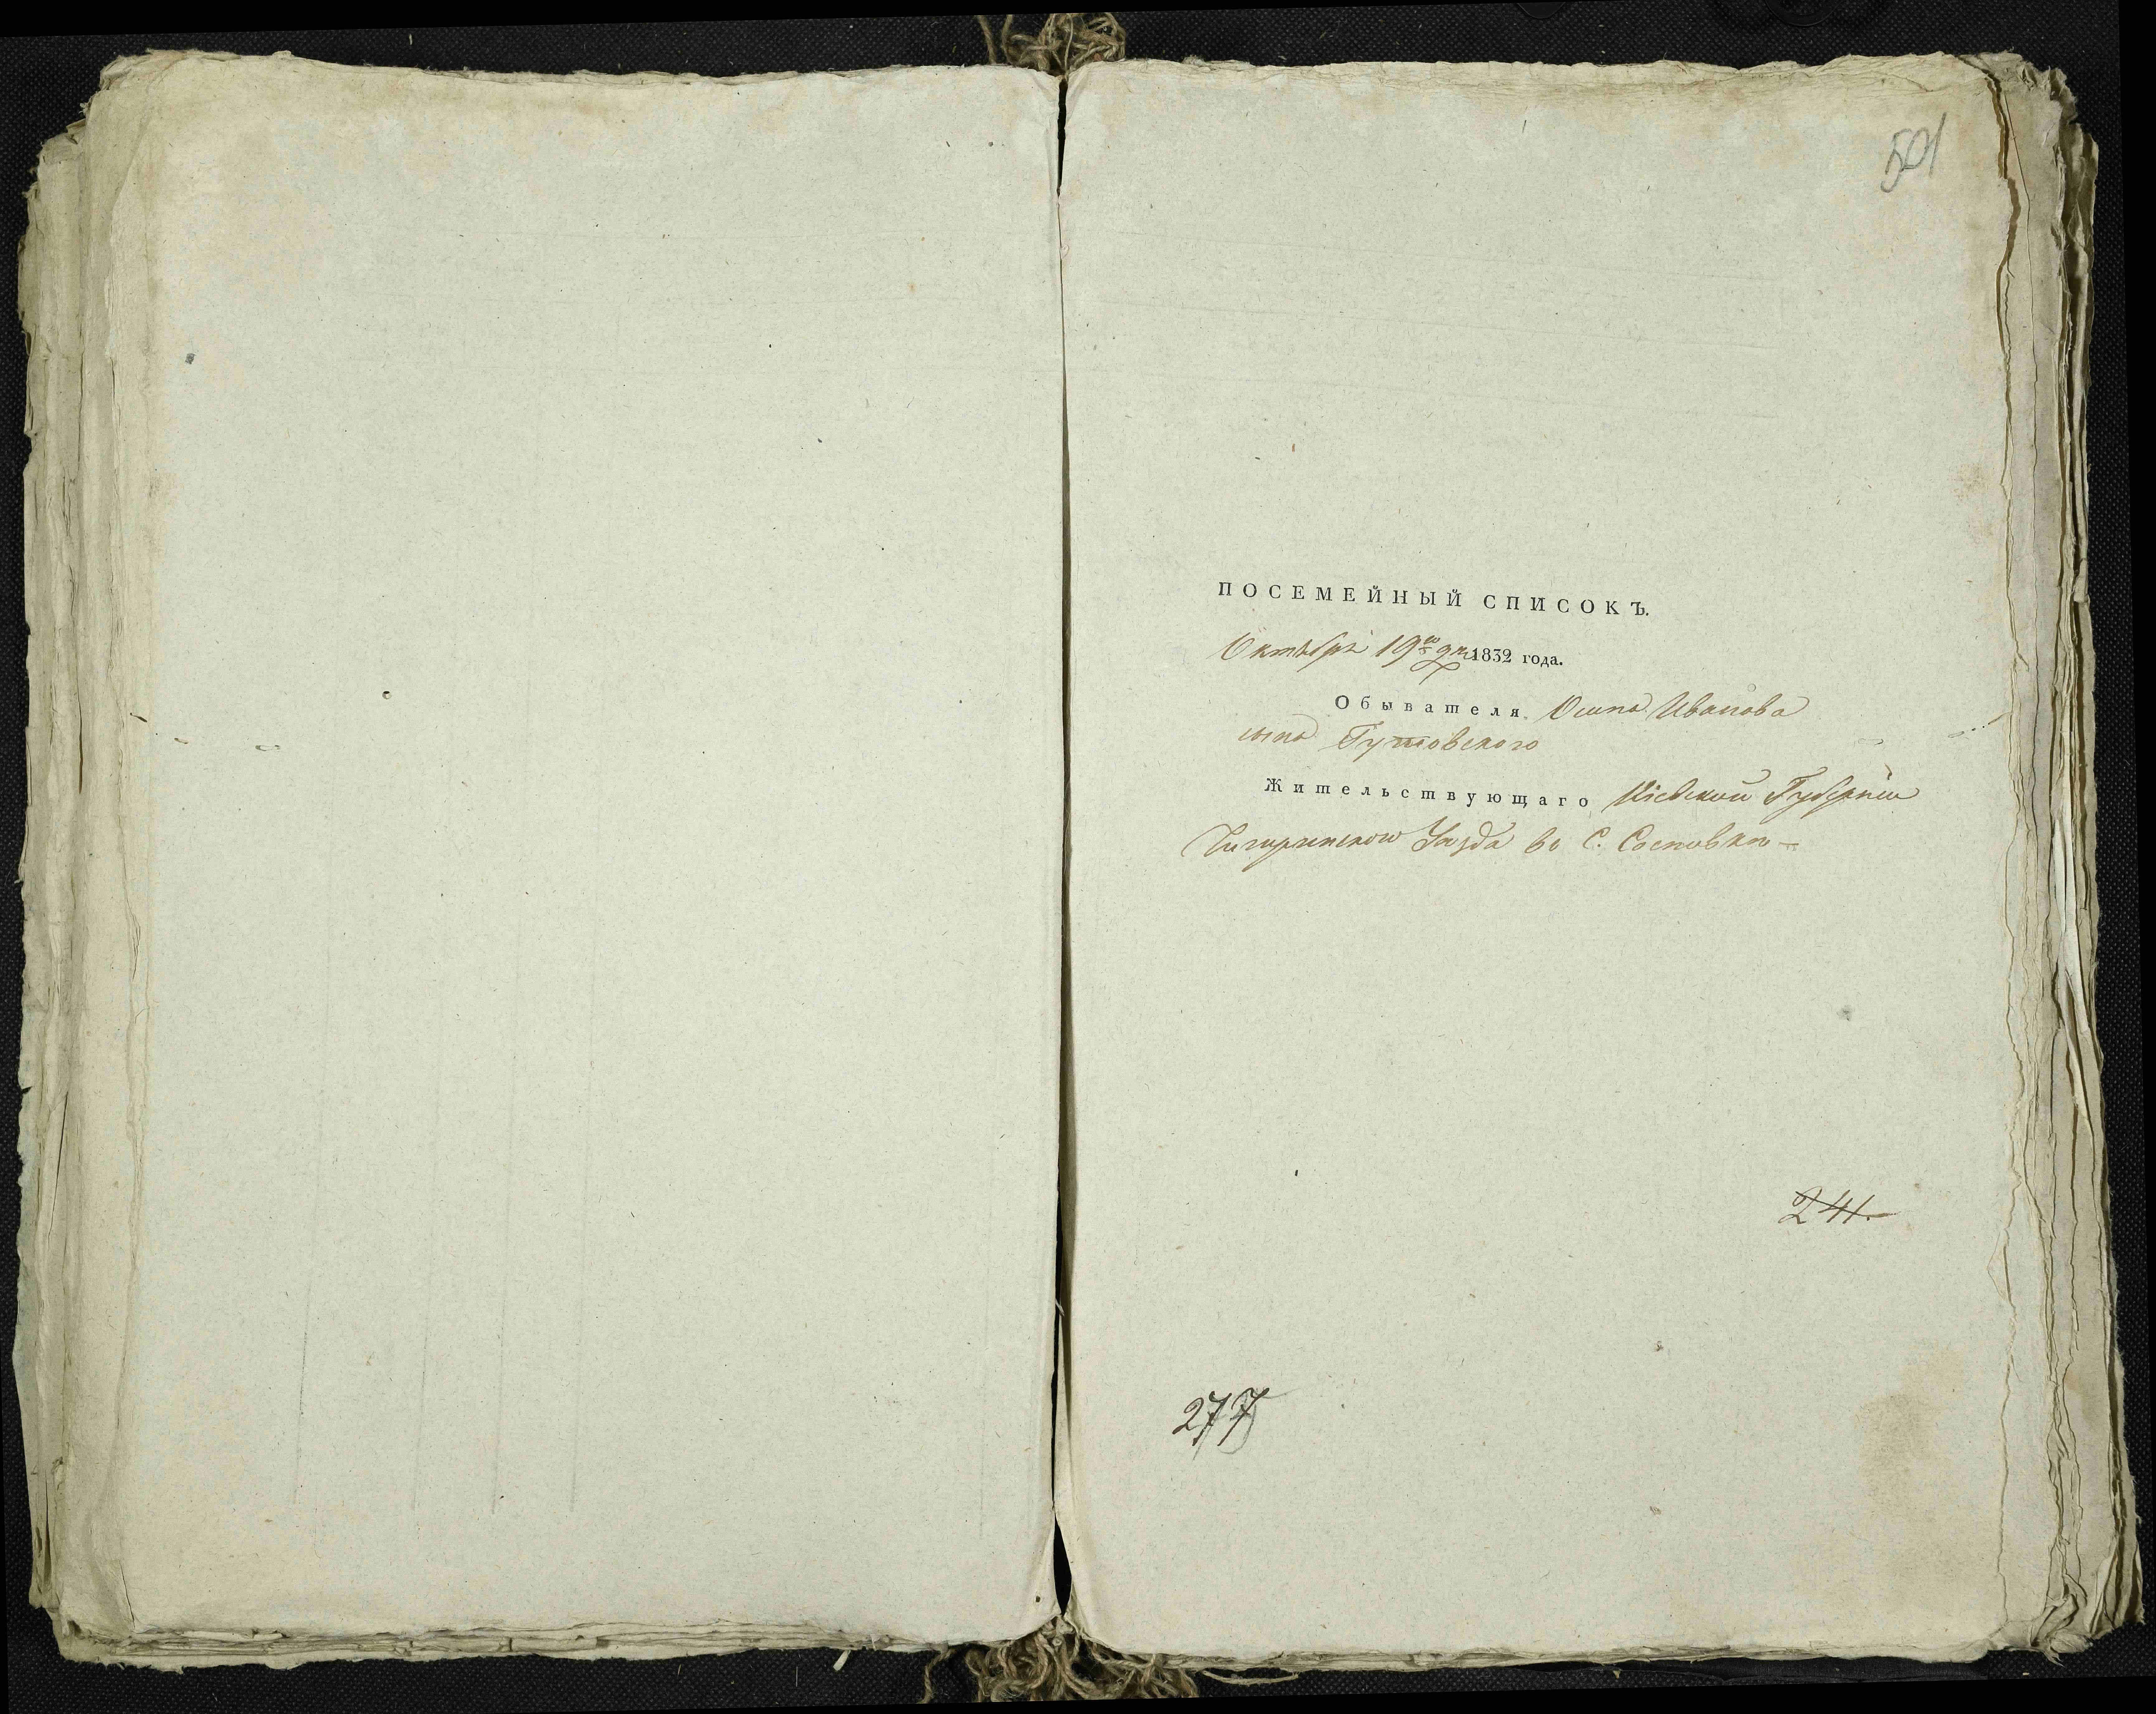 501
ПОСЕМЕЙНЫЙ СПИСОКЪ.
Октября 19го дня 1832 года.
Обывателя Осипа Иванова
сына Гутовского
Жительствующаго Кіевской Губерніи
Чигиринского Уезда во С. Сосновки
241.
277